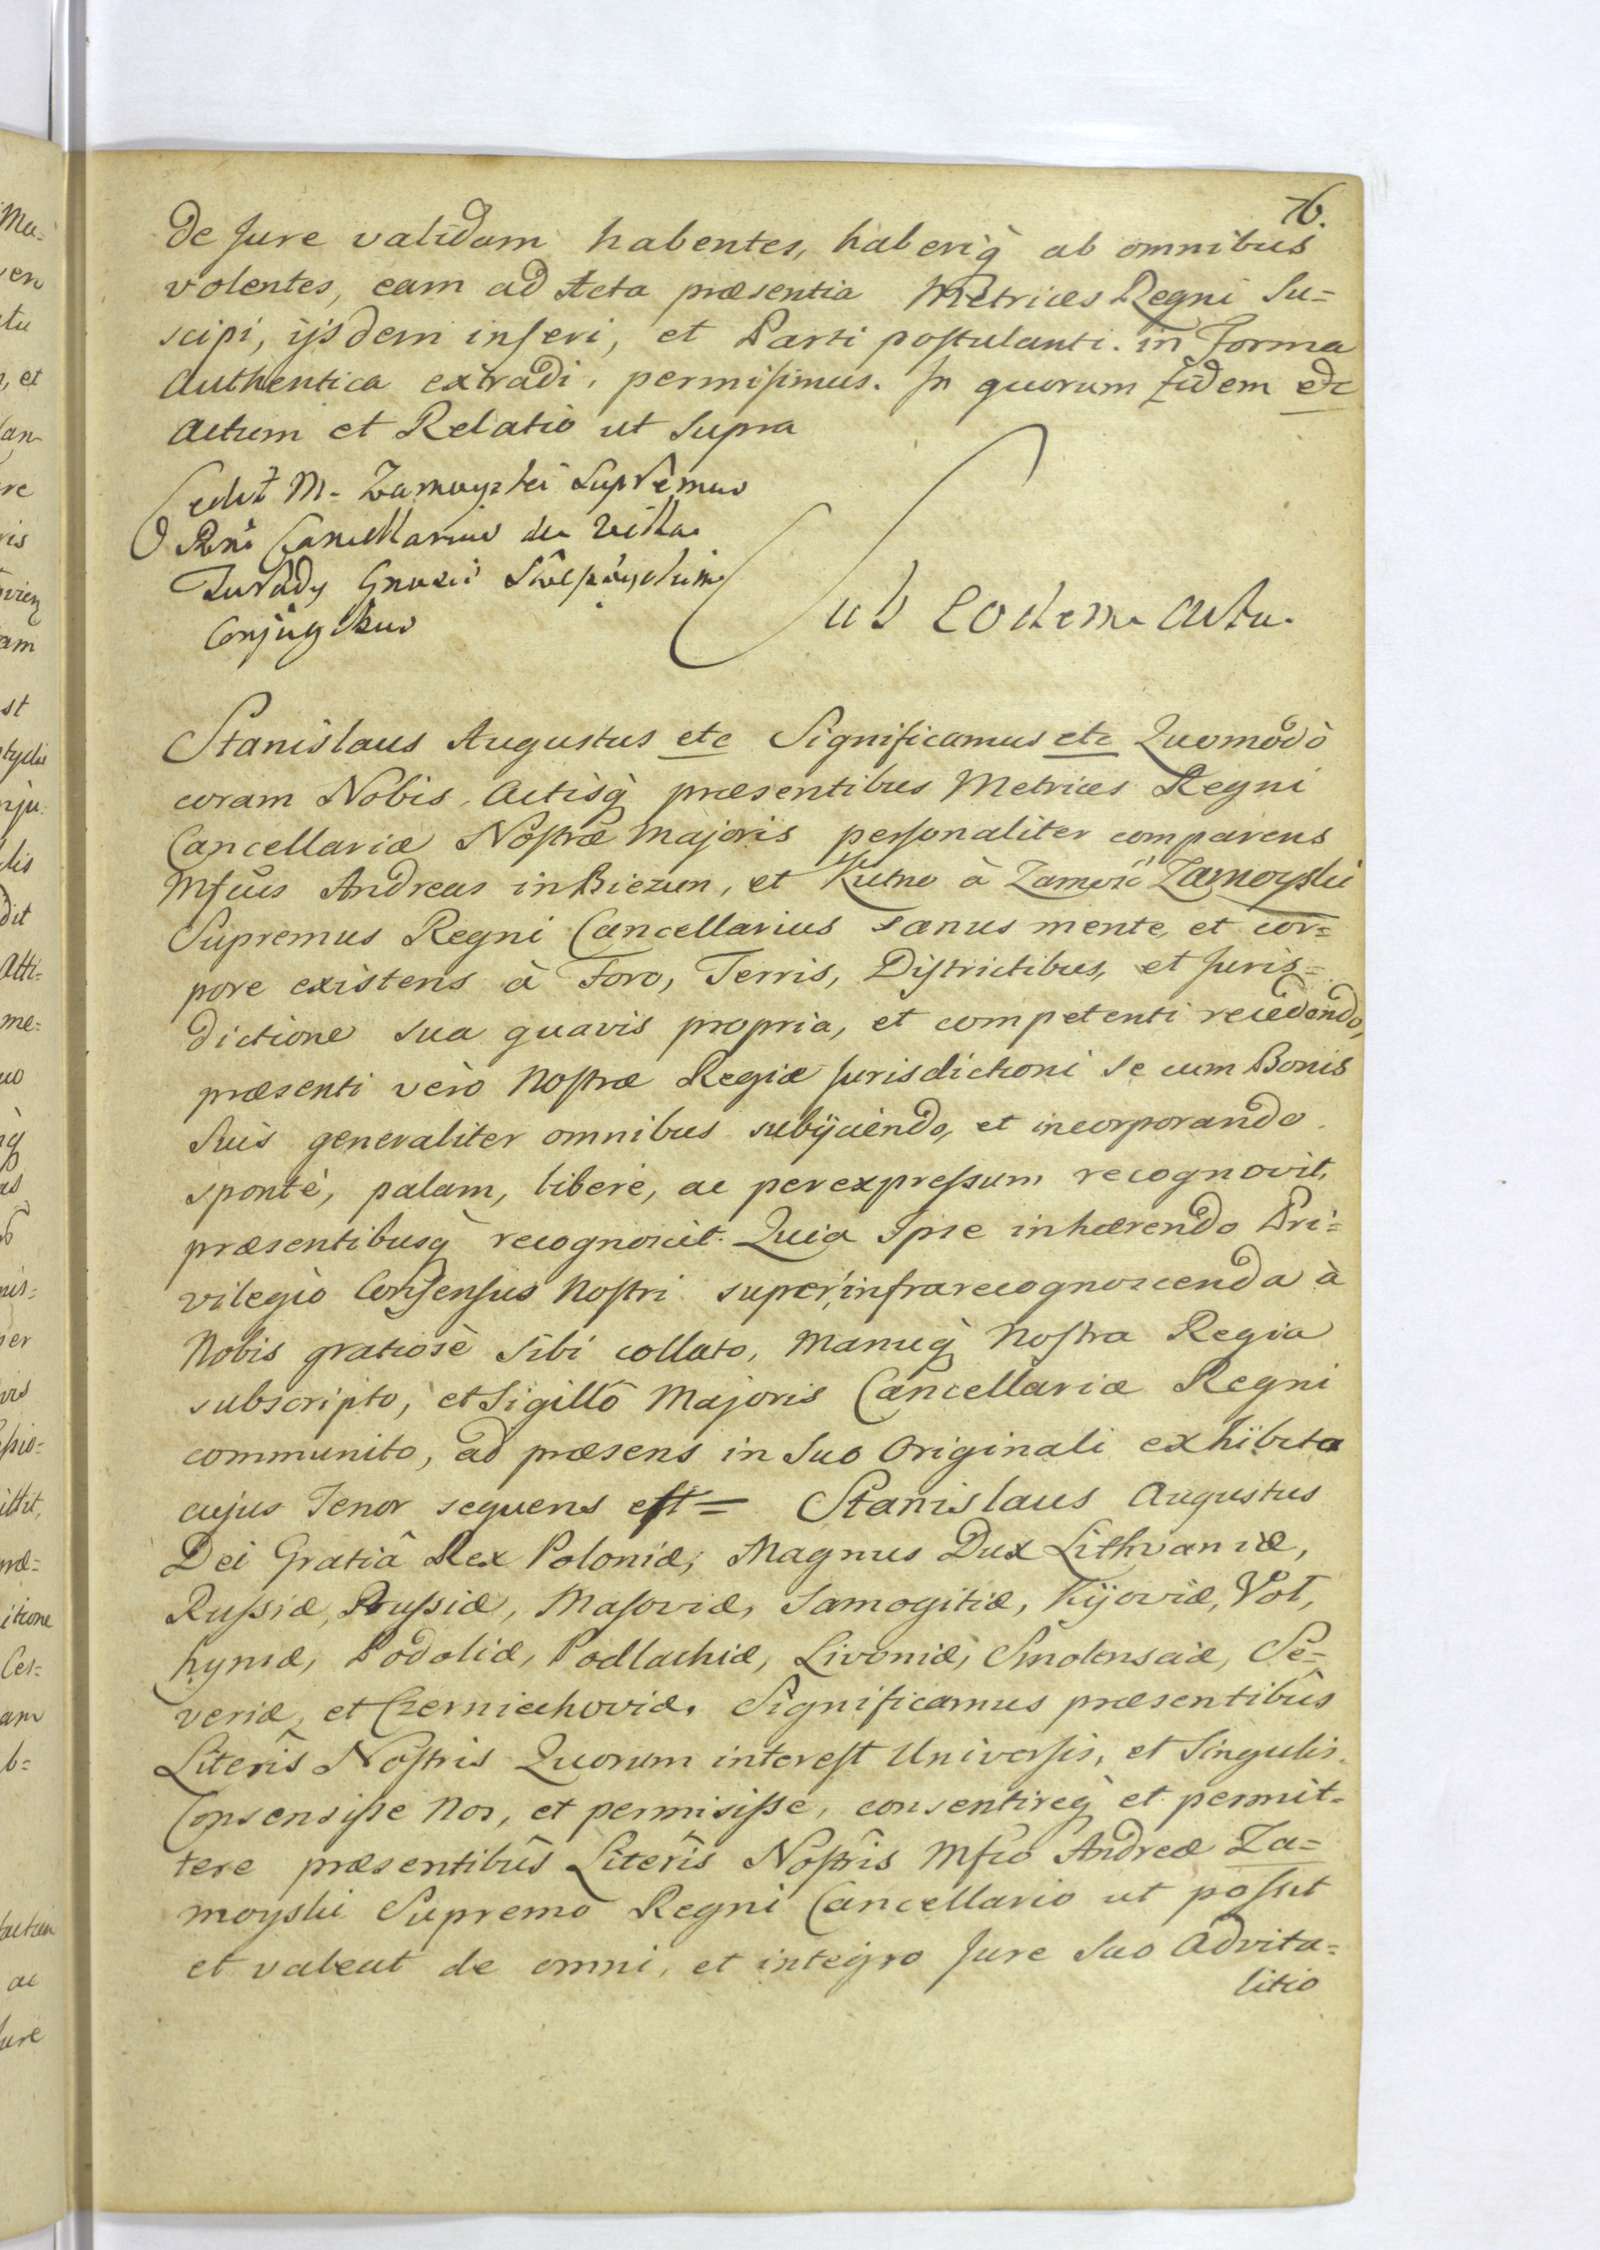 76.
De Jure validam habentes, haberiq̀ ab omnibus
volentes, eam ad Acta præsentia Metrices Regni Su=
scipi, ijsdem inseri, et Parti postulanti in Forma
Authentica extradi, permisimus. In quorum Fidem etc
Actum et Relatio ut supra
Cedit M. Zamoyski Supremus
Rni Cancellarius de Villa
Gnosis
Conjugibus
Sub eodem actu.
Stanislaus Augustus etc Significamus etc Quomodò
coram Nobis, Actisq̀ præsentibus Metrices Regni
Cancellariæ Nostræ Majoris personaliter comparens
Mfcus Andreas in Biezun, et Kutno à Zamość Zamoyski
Supremus Regni Cancellarius sanus mente, et cor=
pore existens à Foro, Terris, Districtibus, et Juris=
dictione sua quavis propria, et competenti recedendo,
præsenti verò Nostræ Regiæ Jurisdictioni se cum Bonis
Suis generaliter omnibus subijciendo, et incorporando
spontè, palam, liberè, ac per expressum recognovit,
præsentibusq̀ recognoscit. Quia Ipse inhærendo Pri=
vilegio Consensus Nostri super infrarecognoscenda à
Nobis gratiosè sibi collato, Manuq̀ Nostra Regia
subscripto, et Sigillo Majoris Cancellariæ Regni
communito, ad præsens in Suo Originali exhibito
cujus Tenor sequens est = Stanislaus Augustus
Dei Gratiâ Rex Poloniæ, Magnus Dux Lithvaniæ,
Russiæ, Prussiæ, Masoviæ, Samogitiæ, Kijoviæ, Vol,
hyniæ, Podoliæ, Podlachiæ, Livoniæ, Smolensciæ, Se=
veriæ, et Czerniechoviæ. Significamus præsentibûs
Literîs Nostris Quorum interest Universis, et Singulis.
Consensisse Nos, et permisisse, consentireq̀ et permit=
tere præsentibûs Literîs Nostrîs Mfco Andreæ Za=
moyski Supremo Regni Cancellario ut possit
et valeat de omni, et integro Jure suo Advita=
litio